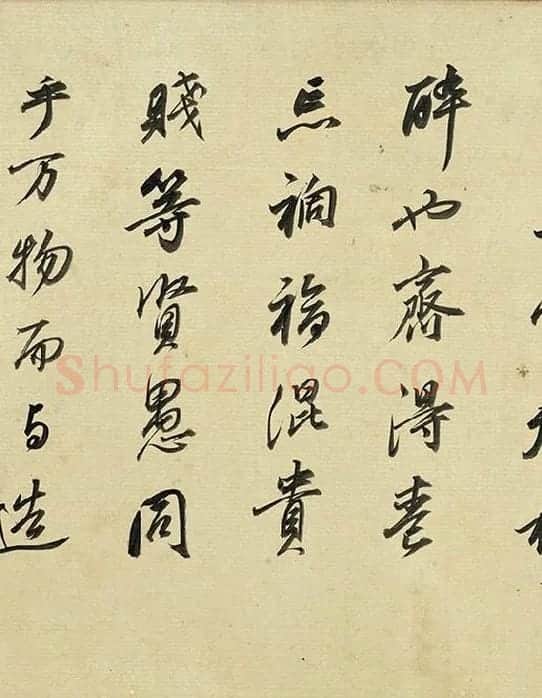 醉也齊得喪
忘禍福混貴
賤等賢愚同
乎万物而与造
Shufaziliao.COM